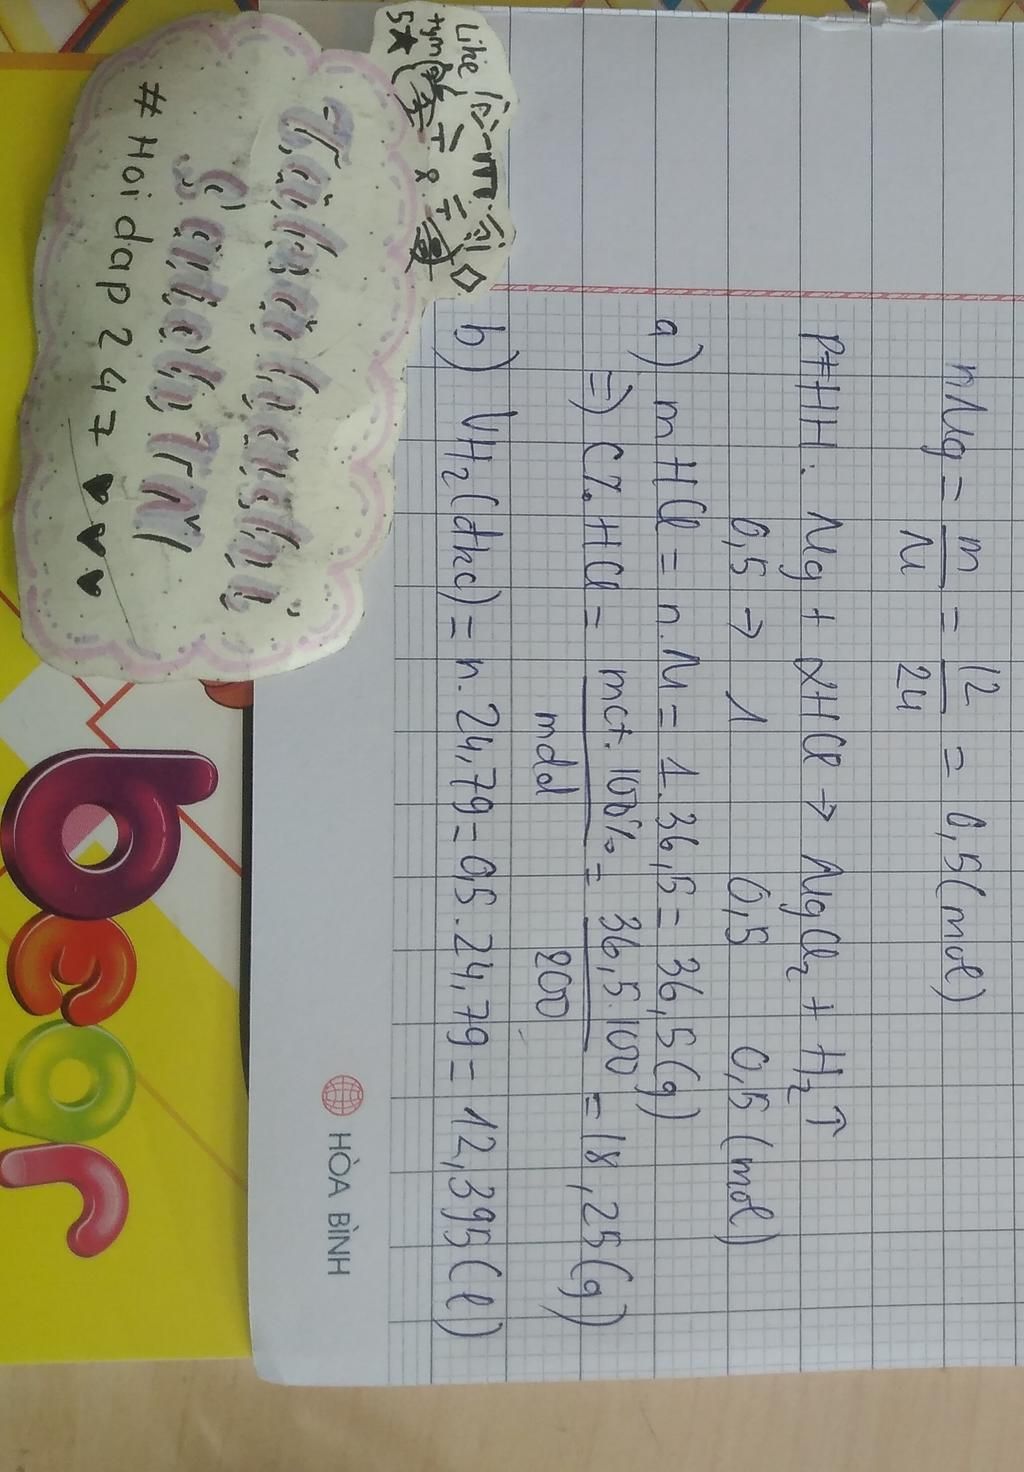 nMg = m/M = 12/24 = 0,5 (mol)
PTHH: Mg + 2HCl → MgCl₂ + H₂↑
0,5 → 1 0,5 0,5 (mol)
a) mHCl = n.M = 1.36,5 = 36,5 (g)
=> C%HCl = mct.100%/mdd = 36,5.100/200 = 18,25 (g)
b) VH₂(đkc) = n.24,79 = 0,5.24,79 = 12,395 (l)
HÒA BÌNH
Like
tym
5★
# Hoidap247 ♥♥♥